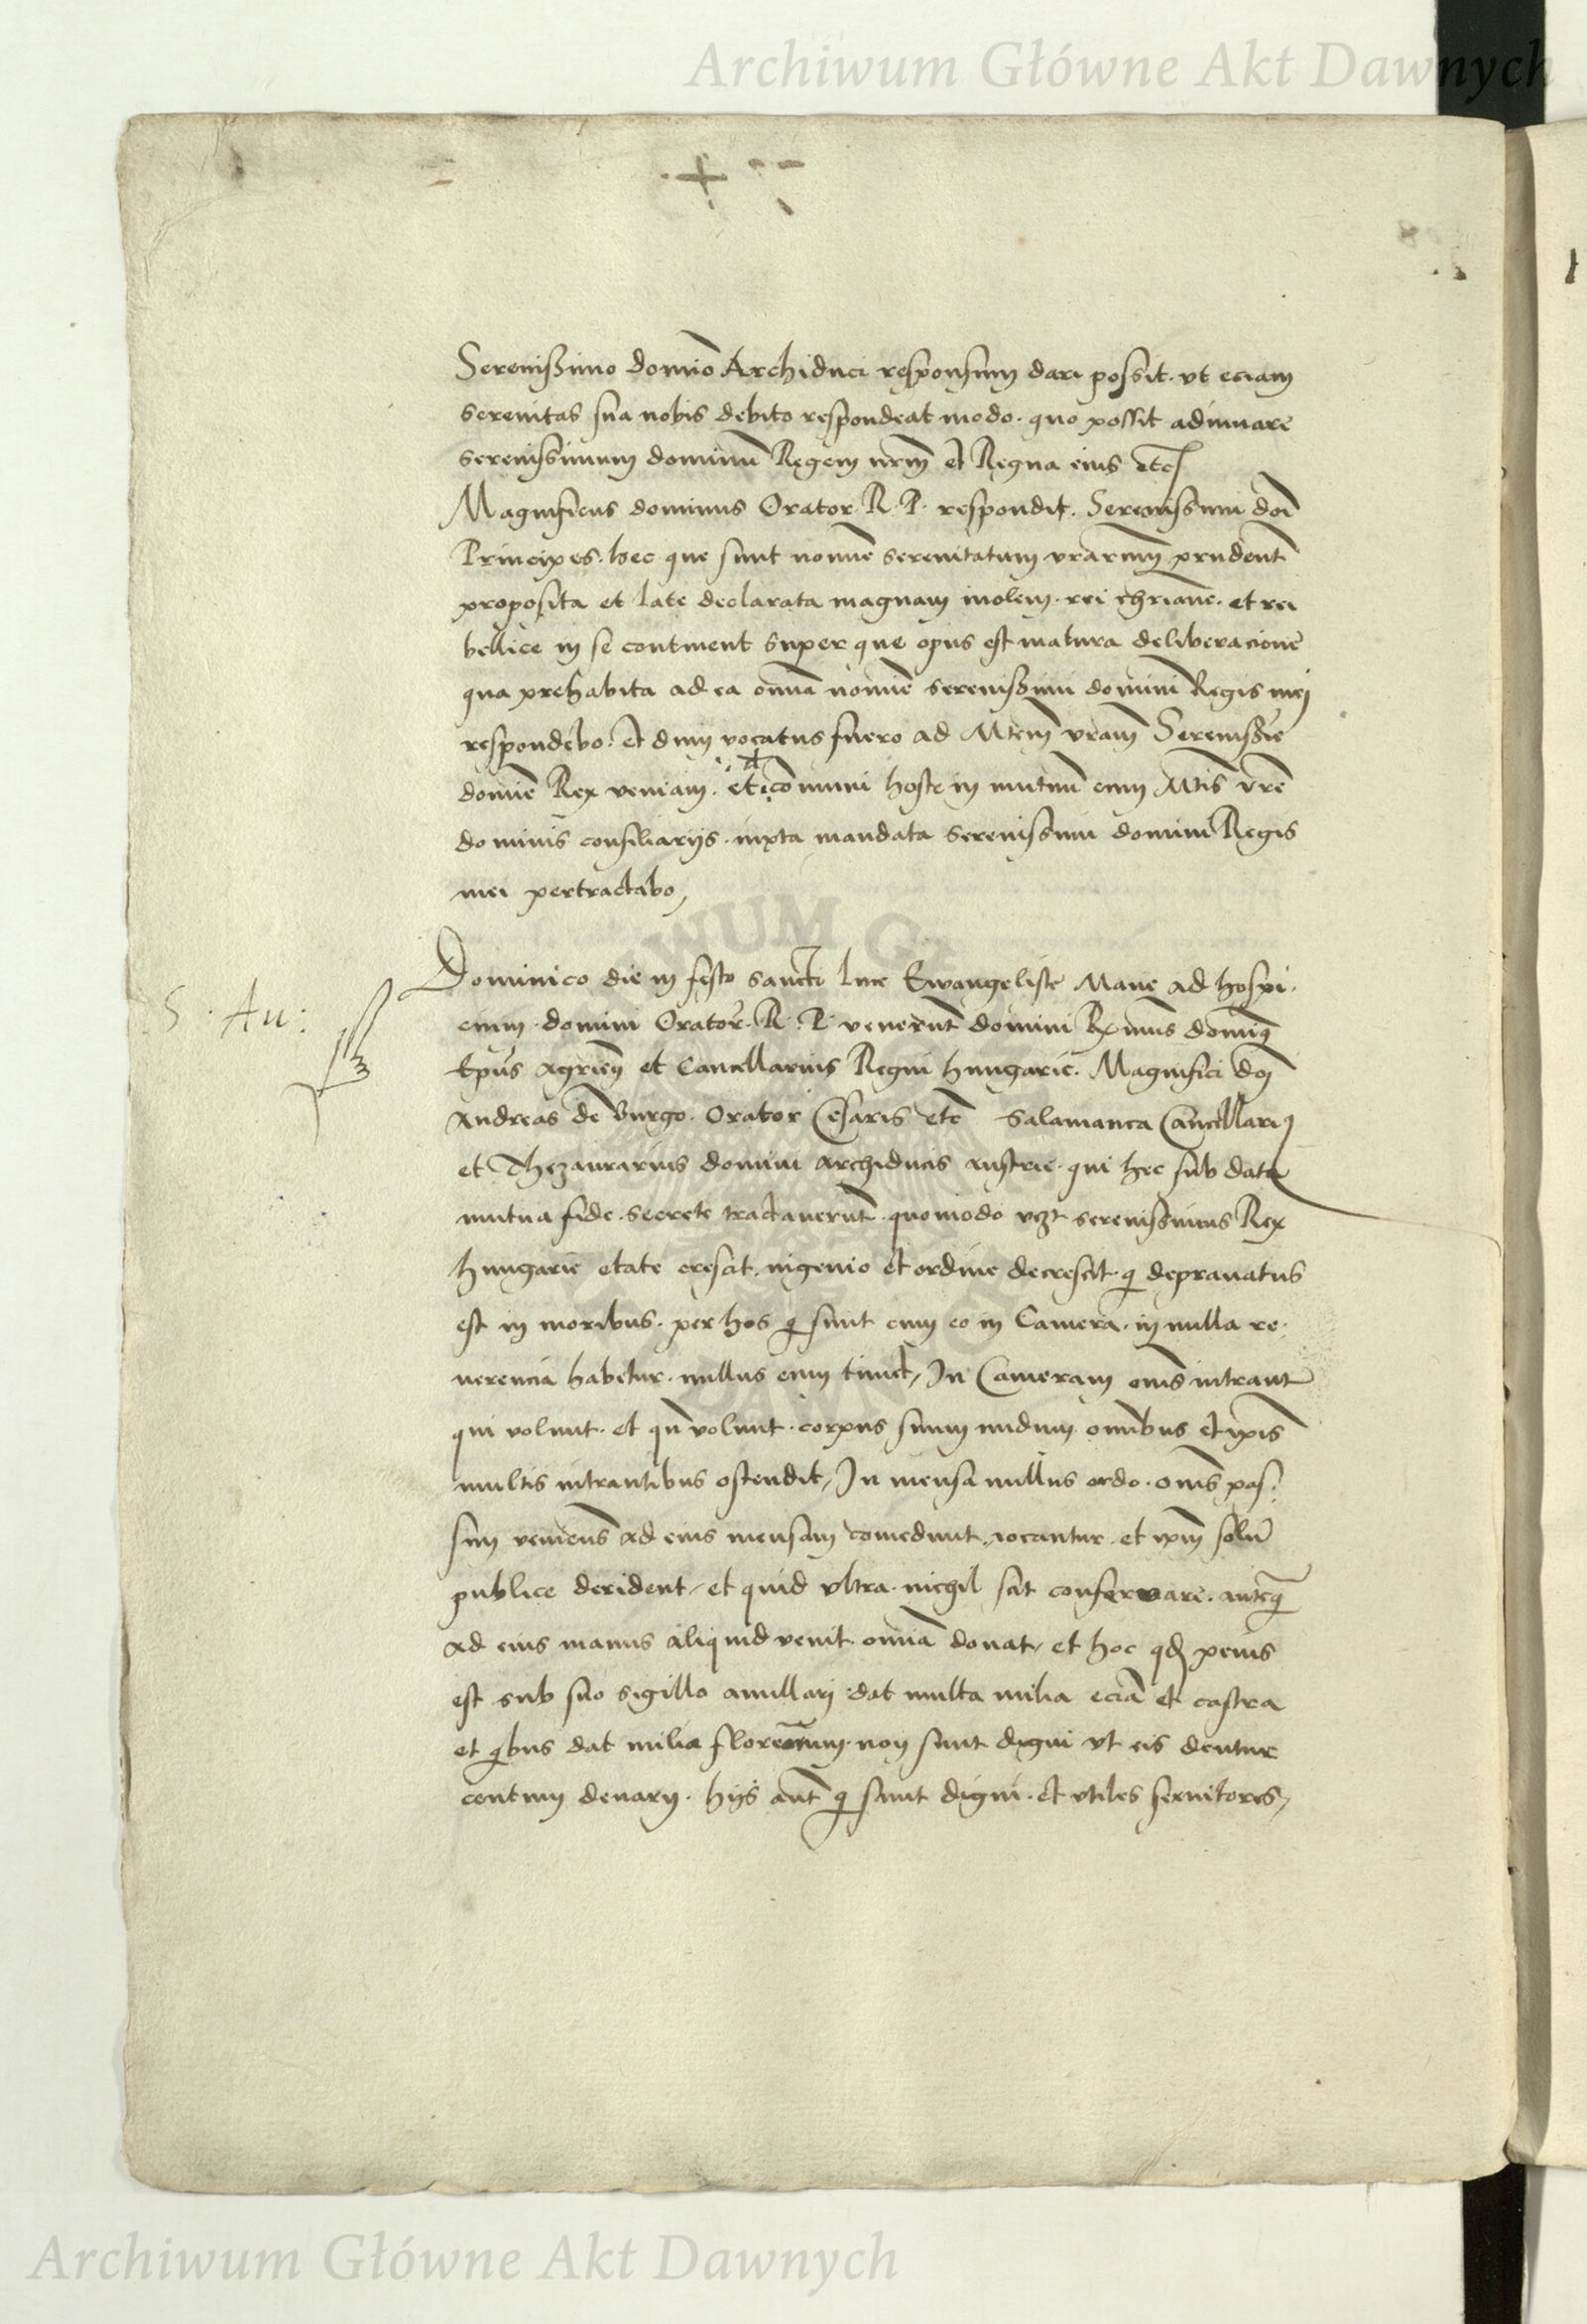 Archiwum Główne Akt Dawnych
Serenissimo domio Archiduci responsum dari possit. vt eciam
serenitas sua nobis debito respondeat modo. quo possit adiuuare
serenissimum dominu Regem nrm et Regna eius etc
Magnificus dominus Orator R. P. respondit. Serenissimi doi
Principes. hec que sunt nomine serenitatum vrarum prudent
proposita et late declarata magnam molem. rei chriane. et rei
bellice in se continent super que opus est matura deliberacione
qua prehabita ad ea omnia nomine serenissimi domini Regis mei
respondebo. et dum vocatus fuero ad Mtem vram Serenissie
domine Rex veniam. et comuni hoste in mutuu cum Mtis vre
dominis consiliarijs. iuxta mandata serenissimi domini Regis
mei pertractabo,
S. Au:
Dominico die in festo sancti luce Ewangeliste Mane ad hospi.
cium. domini Orator. R. P. venerunt domini Rx mus domiq
Epus Agrien et Cancellarius Regni hungarie. Magnifici doi
Andreas de Burgo. Orator Cesaris etc Salamanca Cancellari9
et Thezaurarius domini archiducis austrie. qui hec sub data
mutua fide. secrete tractauerunt. quomodo vzt serenissimus Rex
hungarie etate crescit. ingenio et ordine decrescit. q deprauatus
est in moribus. per hos q sunt cum eo in Camera. in nulla re.
uerencia habetur. nullus eum timet, In Cameram eius intrant
qui volunt. et qn volunt. corpus suum nudum. omibus et ipis
multis intrantibus ostendit, In mensa nullus ordo. omis pas.
sim veniens ad eius mensam comedunt. iocantur. et ipm solu
publice derident, et quid vltra. nichil scit conseruare. anteq
ad eius manus aliquid venit. omnia donat, et hoc qd peius
est sub suo sigillo anullari dat multa milia ecia et castra
et qbus dat milia florenorum. non sunt digni vt eis dentur
centum denarij. hijs aut q sunt digni. et vtiles seruitores,
Archiwum Główne Akt Dawnych